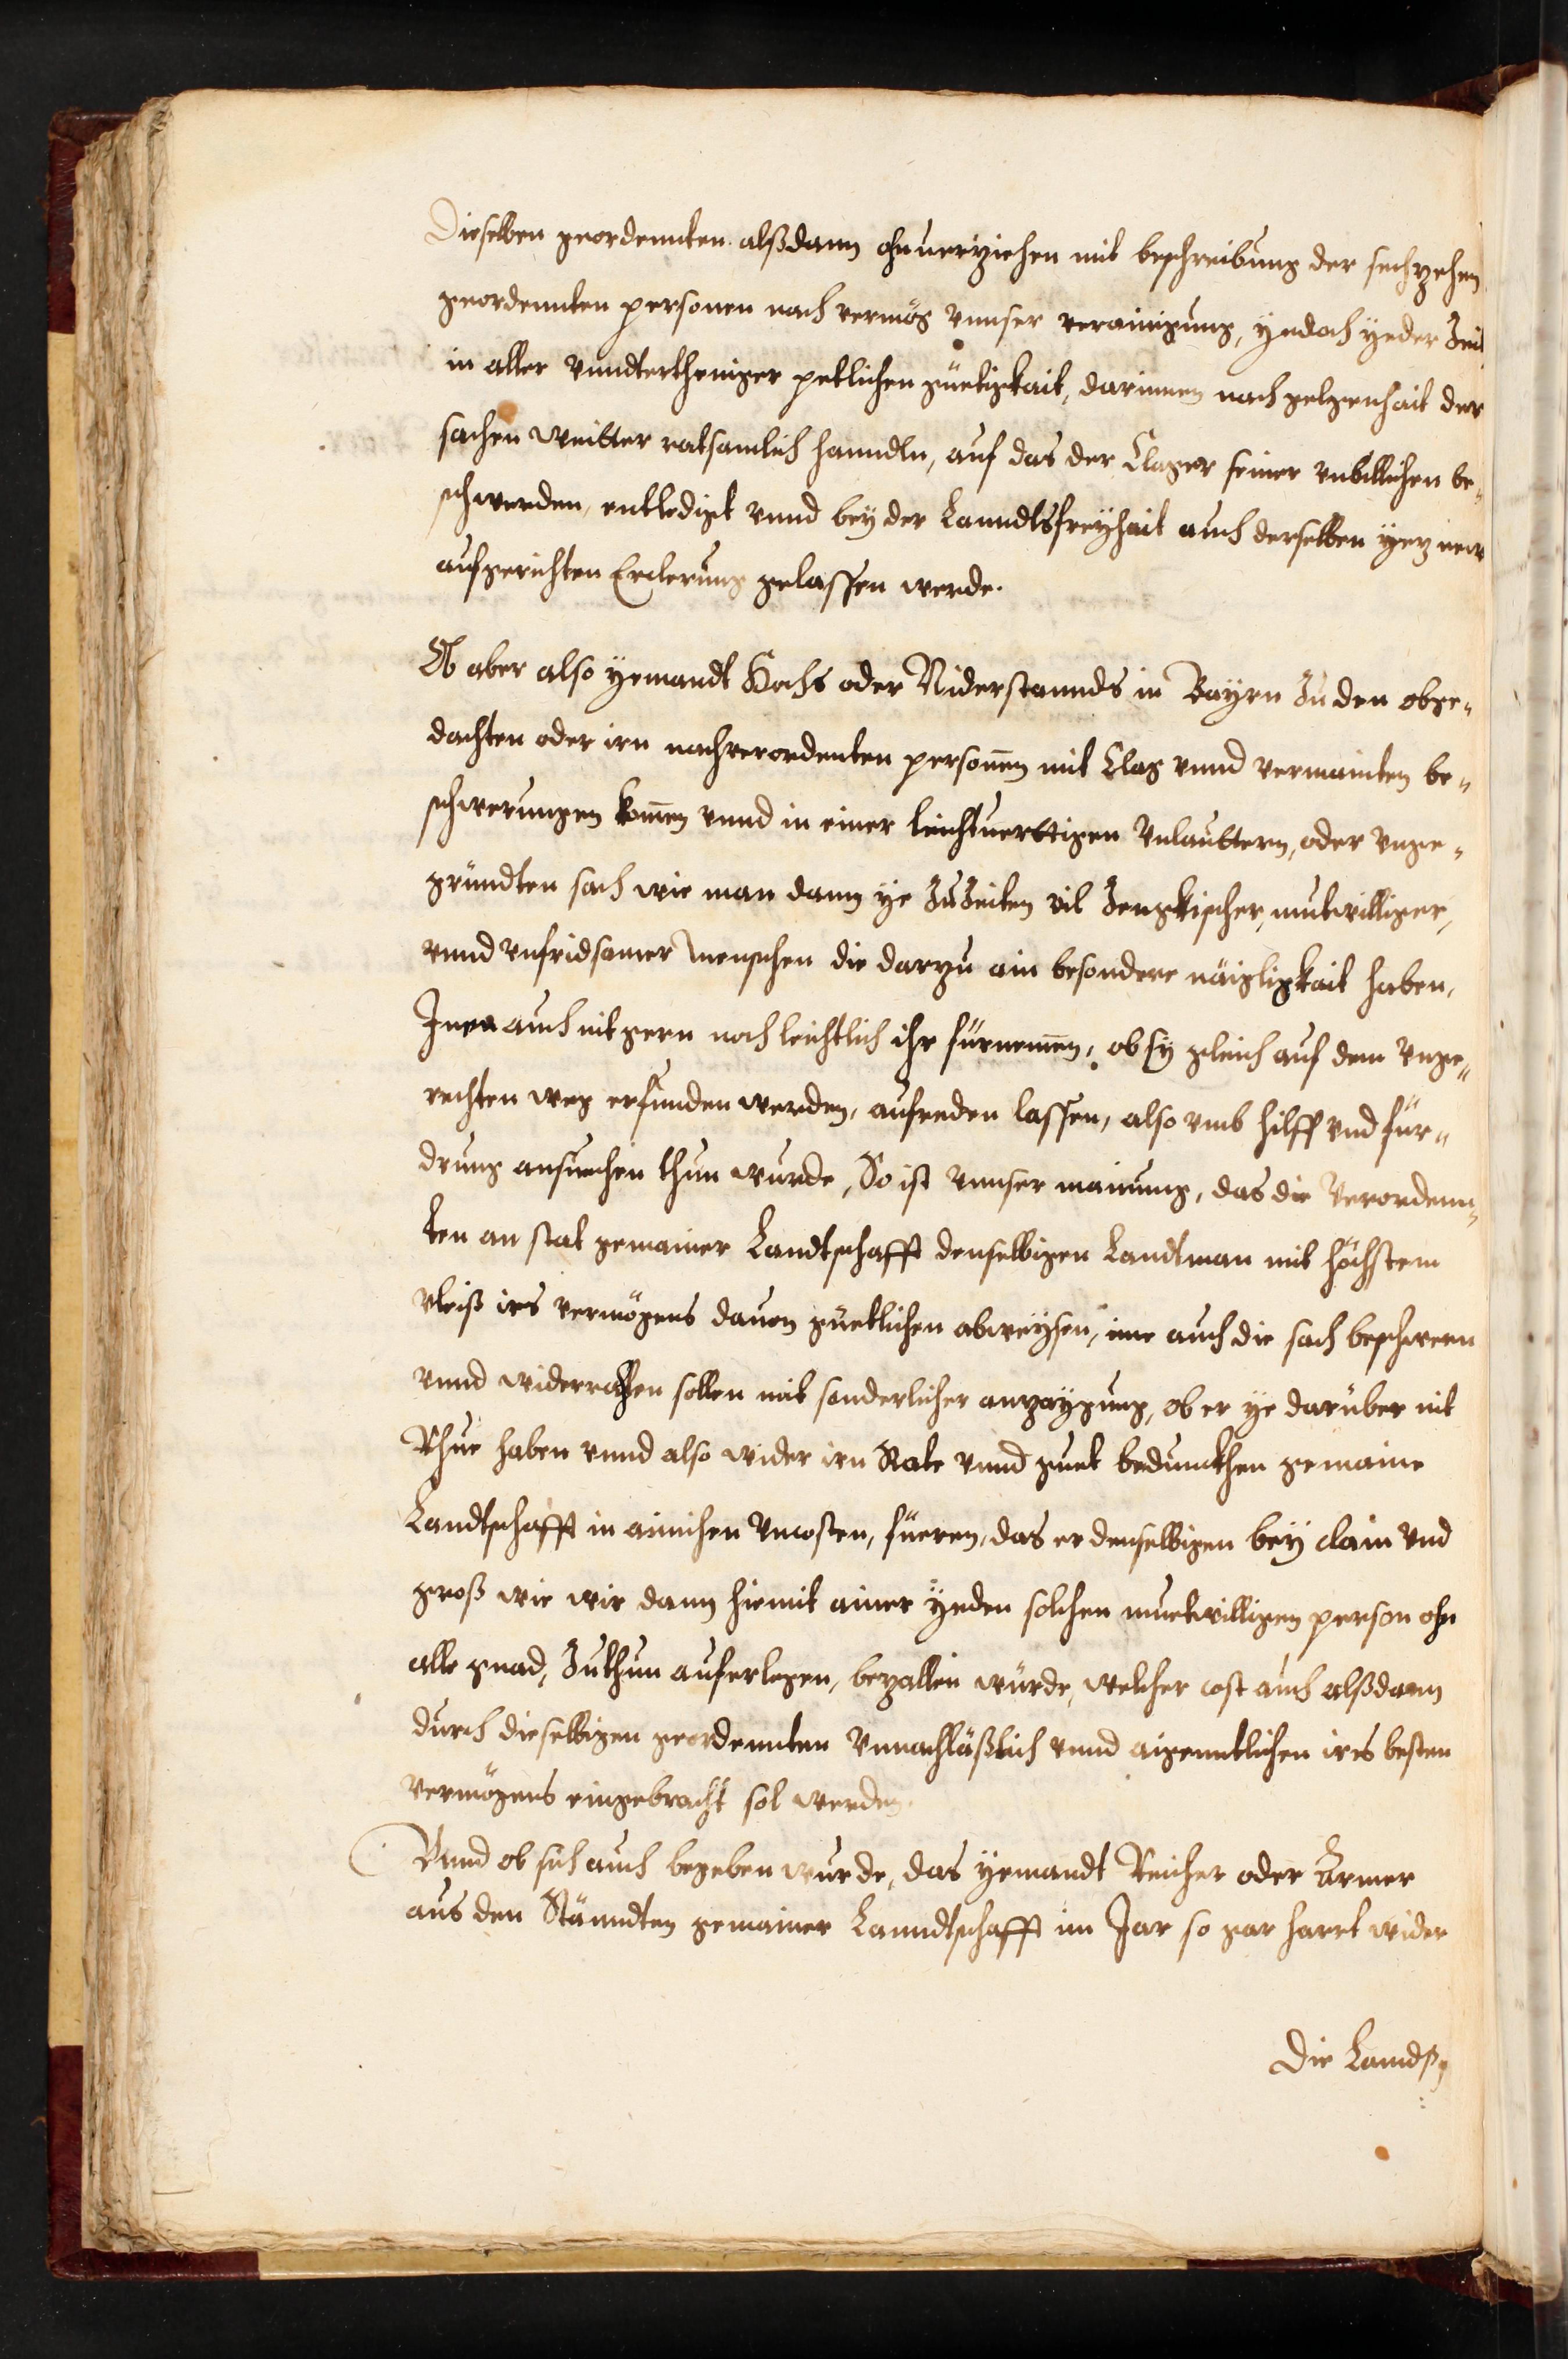 Dieselben geordennten alßdann ohnuerziehen mit beschreibung der sechzehen
geordennten personen nach vermög vnnser verainigung, yedoch yeder Zeit
in aller vnndtertheniger petlichen güetigkait, darinnen nach gelgenhait der
sachen weitter ratsamlich hanndln, auf das der Clager seiner vnbillichen be„
schwerden, entledigt vnnd bey der Lanndtsfreyhait auch derselben yetz new
aufgerichten Erclerung gelassen werde.
Ob aber also yemandt Hochs oder Niderstannds in Bayrn Zu den obge„
dachten oder irn nachverordenten personen mit Clag vnnd vermainten be„
schwerungen komen vnnd in einer leichtuerttigen vnlauttern, oder vnge„
gründten sach wie man dann ye Zu Zeiten vil Zengkischer, mutwilliger,
vnnd vnfridsamer Menschen die darzu ain besondere näigligkait haben,
Inen auch nit gern noch leichtlich ihr fürnemen, ob sy gleich auf dem vnge„
rechten weg erfunden werden, aufreden lassen, also vmb hilff vnd für„
drung ansuechen thun wurde, So ist vnnser mainung, das die Verordenn„
ten an stat gemainer Landtschafft denselbigen Landtman mit höchstem
vleiß irs vermögens dauon güetlichen abweysen, ime auch die sach beschwern
vnnd widerrathen sollen mit sonderlicher anzaygung, ob er ye darüber nit
Rhue haben vnnd also wider irn Rate vnnd guet bedunckhen gemaine
Landtschafft in ainichen vncosten, füeren, das er denselbigen bey clain vnd
groß wie wir dann hiemit ainer yeden solchen muetwilligen person ohn
alle gnad, Zuthun auferlegen, bezallen würde, welcher cost auch alßdann
durch dieselbigen geordennten Vnnachläßlich vnnd aigenntlichen irs besten
vermögens eingebracht sol werden.
Vnnd ob sich auch begeben wurde, das yemandt Reicher oder Armer
aus den Stänndten gemainer Lanndtschafft im Jar so gar harrt wider
Die Landß„